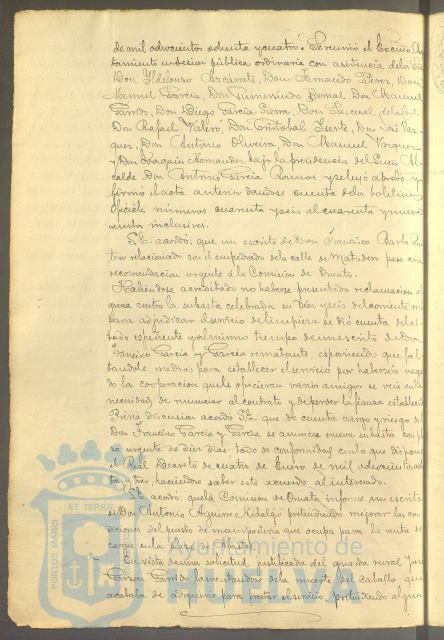 de mil ochocientos ochenta y cuatro. Se reunió el Excmo. Ayun
tamiento en sesion pública ordinaria con asistencia de los Sres
Don Ildefonso Azcárate, Don Fernando Perez, Don
Manuel Garcia, Don Gumersindo Bernal, Don Manuel
Garrido, Don Diego Garcia Sierra, Don Pascual
Don Rafael Valero, Don Cristóbal Iserte, Don José Vaz
quez, Don Antonio Oliveira, Don Manuel Vazquez
y Don Joaquin bajo la presidencia del Excmo. Sr. Al
calde Don Antonio Garcia Ramos y se leyó, aprobó y
firmó el acta anterior dandose cuenta de los boletines
oficiales números cuarenta y seis al cuarenta y nueve
ambos inclusives.
S.E. acordó: que un escrito de Don Francisco Barba
tero relacionado con el empedrado de la calle de Matadero pase con
recomendacion urgente á la Comision de Ornato.
Habiéndose acreditado no haberse presentado reclamacion al
guna contra la subasta celebrada en diez y seis del corriente mes
para adjudicar el servicio de limpieza se dió cuenta del ci
tado espediente y al mismo tiempo de un escrito de Don
Francisco Garcia y Garcia rematante, esponiendo que fal
tandole medios para establecer el servicio por haberseis nega
do la cooperacion que le ofrecieran varios amigos se veia en la
necesidad de renunciar al contrato y de perder la fianza establecida.
Prévia discusion acordó S.E. que de cuenta cargo y riesgo de
Don Francisco Garcia y Garcia se anuncie nueva subasta con pla
zo urgente de diez dias todo de conformidad con lo que dispone
el Real Decreto de cuatro de Enero de mil ochocientos ochen
ta y tres, haciendose saber este acuerdo al interesado.
S.E. acordó: que la Comision de Ornato informe un escrito
de Don Antonio Aguirre Hidalgo pretendiendo mejorar las con
diciones del puesto de mamposteria que ocupa para la venta de
carne en la plaza de Abastos.
En vista de una solicitud justificada del guarda rural José
Garzon Garrido lamentandose de la muerte del caballo que
acababa de adquirir para prestar el servicio, pretendiendo alguna
PORTUS MARIS
ET TERRAE
Ayuntamiento de
HUELVA